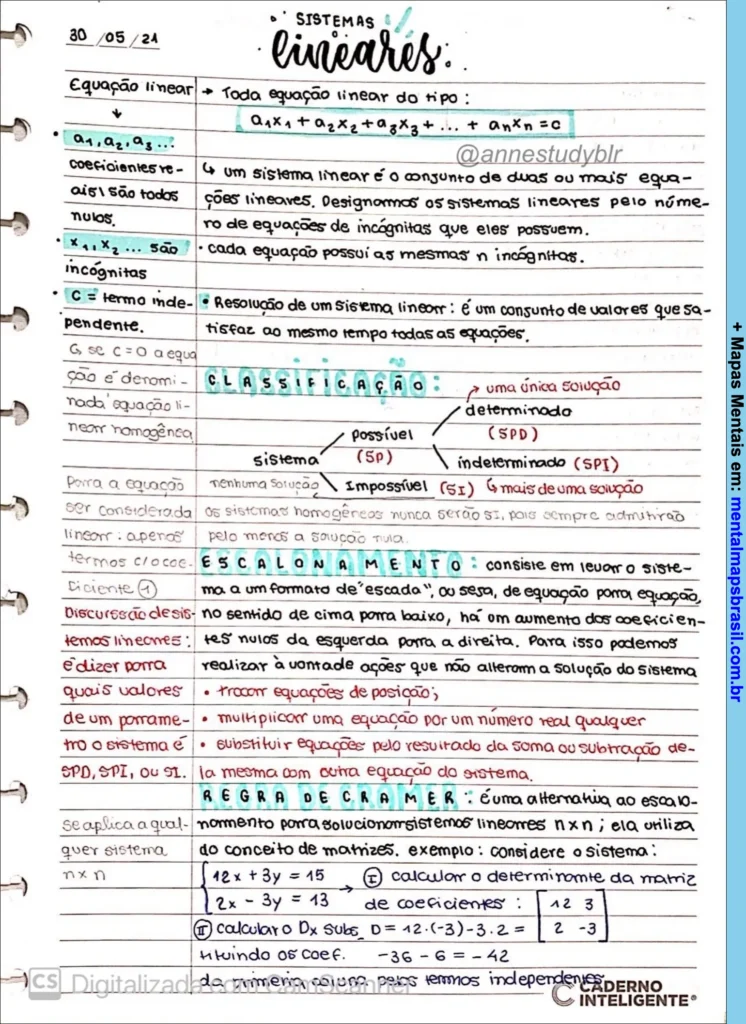 30/05/21
SISTEMAS
lineares:
Equação linear
↓
a₁, a₂, a₃...
coeficientes re-
ais\ são todos
nulos.
• x₁, x₂ ... são
incógnitas
• C = termo inde-
pendente.
↳ se C=0 a equa
ção é denomi-
nada equação li-
near homogênea
Para a equação
ser considerada
linear: apenas
termos c/o coe-
ficiente 1
Discussão de sis-
temas lineares:
é dizer para
quais valores
de um parame-
tro o sistema é
SPD, SPI, ou SI.
se aplica a qual-
quer sistema
n x n
→ Toda equação linear do tipo:
a₁x₁ + a₂x₂ + a₃x₃ + ... + anxn = c
@annestudyblr
↳ um sistema linear é o conjunto de duas ou mais equa-
ções lineares. Designamos os sistemas lineares pelo núme-
ro de equações de incógnitas que eles possuem.
• cada equação possui as mesmas n incógnitas.
• Resolução de um sistema linear: é um conjunto de valores que sa-
tisfaz ao mesmo tempo todas as equações.
CLASSIFICAÇÃO:
uma única solução
determinado
possível
(SPD)
sistema
(SP)
indeterminado (SPI)
nenhuma solução
Impossível (SI)
↳ mais de uma solução
os sistemas homogêneos nunca serão SI, pois sempre admitirão
pelo menos a solução nula.
ESCALONAMENTO: consiste em levar o siste-
ma a um formato de "escada", ou seja, de equação para equação,
no sentido de cima para baixo, há um aumento dos coeficien-
tes nulos da esquerda para a direita. Para isso podemos
realizar à vontade ações que não alteram a solução do sistema
• trocar equações de posição;
• multiplicar uma equação por um número real qualquer
• substituir equações pelo resultado da soma ou subtração de-
la mesma com outra equação do sistema.
REGRA DE CRAMER: é uma alternativa ao escalo-
namento para solucionar sistemas lineares n x n; ela utiliza
do conceito de matrizes. exemplo: considere o sistema:
12x + 3y = 15
2x - 3y = 13
→ I calcular o determinante da matriz
de coeficientes: [12 3
2 -3]
II calcular o Dx subs_ D = 12.(-3) - 3.2 =
tituindo os coef. -36 - 6 = -42
da primeira coluna pelos termos independentes
CS Digitalizada com CamScanner
CADERNO
INTELIGENTE®
+ Mapas Mentais em: mentalmapsbrasil.com.br